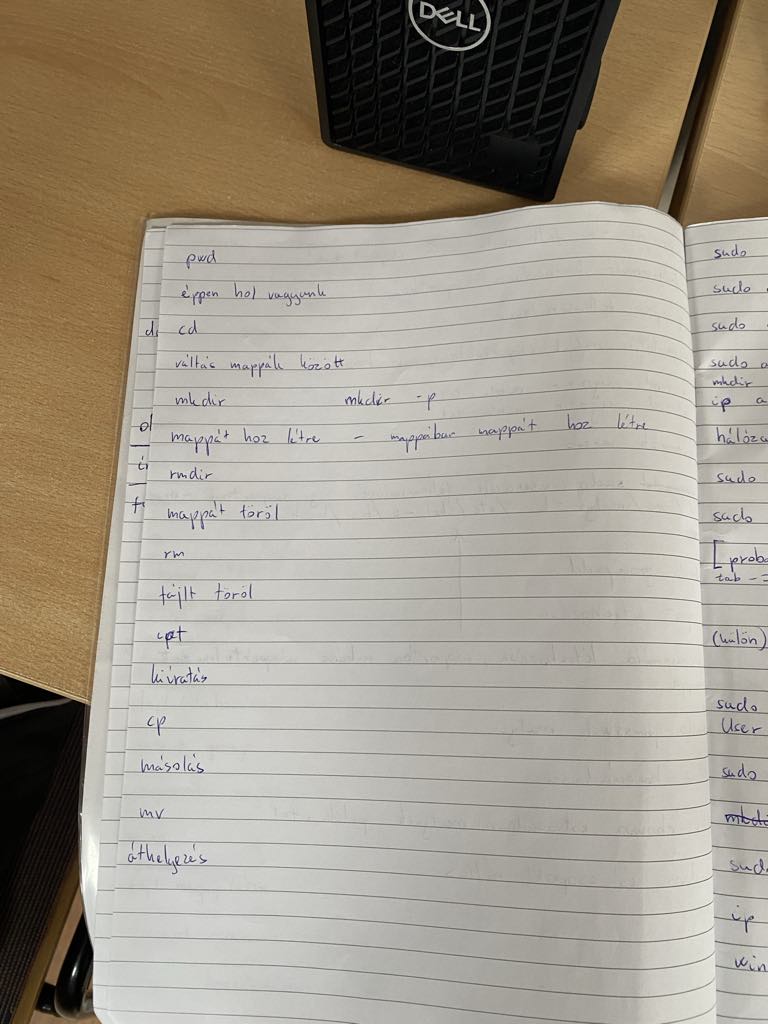 DELL
pwd
éppen hol vagyunk
cd
váltás mappák között
mkdir mkdir -p
mappát hoz létre - mappában mappát hoz létre
rmdir
mappát töröl
rm
fájlt töröl
kiíratás
cp
másolás
mv
áthelyezés
sudo
sudo
sudo
sudo a
mkdir
ip a
háló
sudo
sudo
[proba
tab -
(külön)
sudo
User
sudo
ip
win